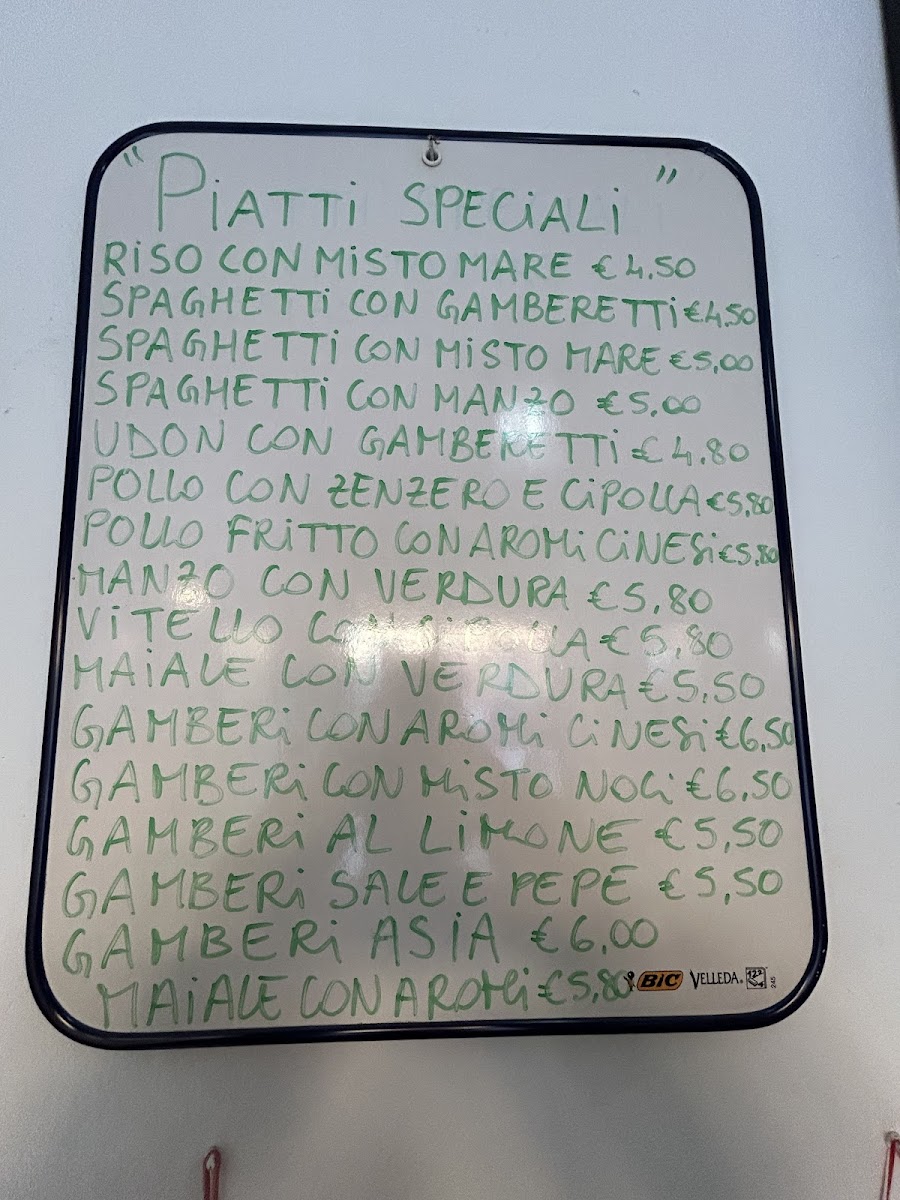 "PIATTI SPECIALI"
RISO CON MISTO MARE €4.50
SPAGHETTI CON GAMBERETTI €4.50
SPAGHETTI CON MISTO MARE €5,00
SPAGHETTI CON MANZO €5,00
UDON CON GAMBERETTI €4,80
POLLO CON ZENZERO E CIPOLLA €5,80
POLLO FRITTO CON AROMI CINESI €5,80
MANZO CON VERDURA €5,80
VITELLO CON CIPOLLA €5,80
MAIALE CON VERDURA €5,50
GAMBERI CON AROMI CINESI €6,50
GAMBERI CON MISTO NOCI €6,50
GAMBERI AL LIMONE €5,50
GAMBERI SALE E PEPE €5,50
GAMBERI ASIA €6,00
MAIALE CON AROMI €5,80
BIC VELLEDA